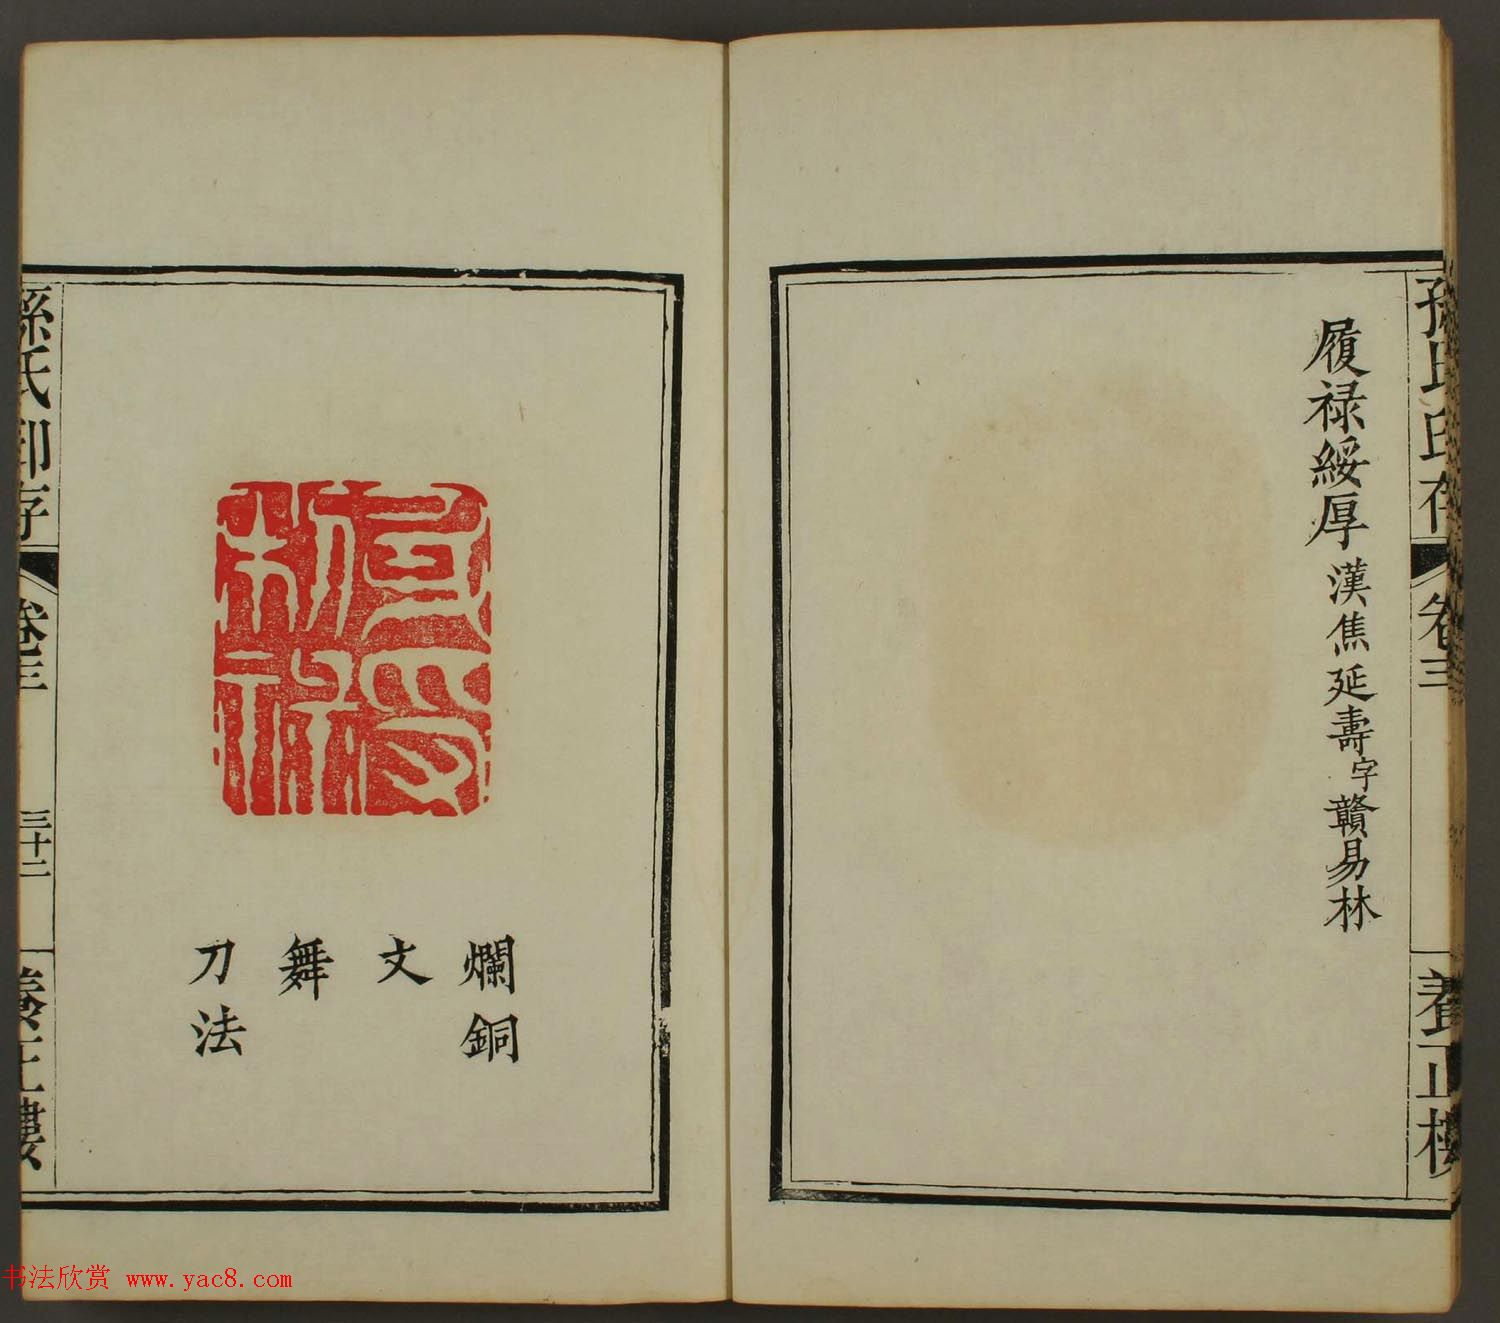 孫氏印存 卷三 養正樓
履祿綏厚 漢焦延壽字贛易林
爛銅
文
舞
刀法
孫氏印存 卷三 三十二 養正樓
书法欣赏 www.yac8.com